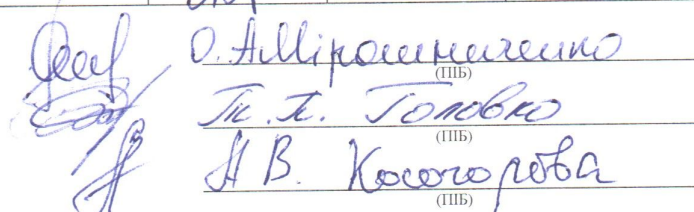 О. А Мірошниченко
(ПІБ)
Т. П. Головко
(ПІБ)
Н В. Косогорова
(ПІБ)